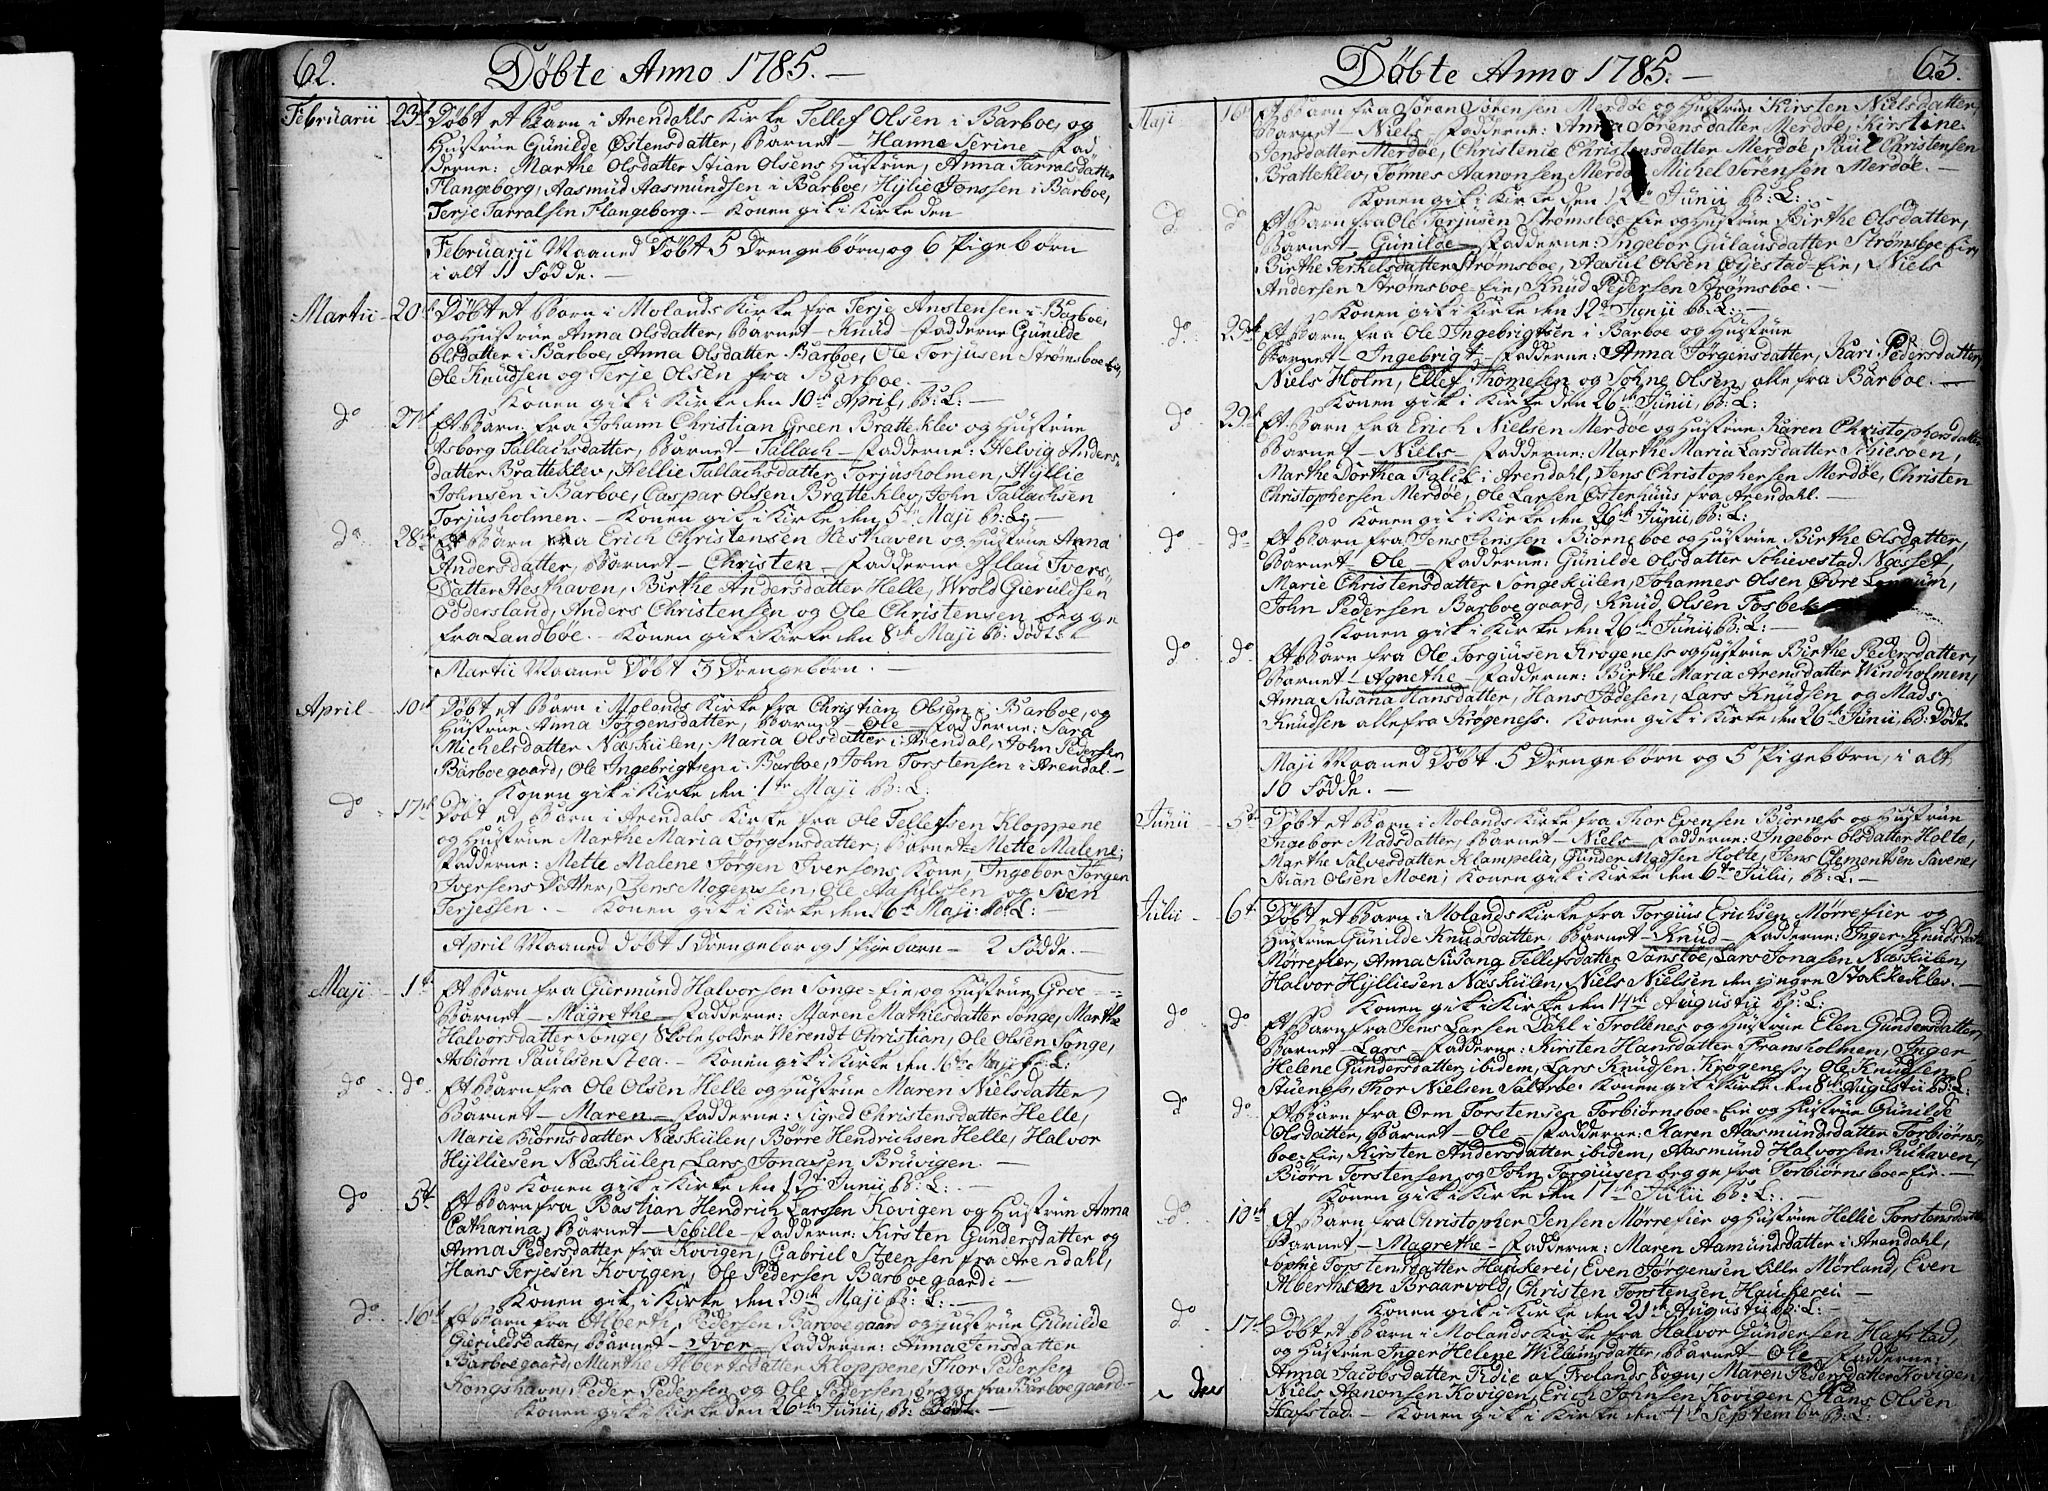 62.
Döbte Anno 1785. —
Februarii 23de Döbt et Barn i Arendahls Kirke Tellef Olsen i Barboe, og
Hustrue Gunilde Østensdatter, Barnet — Hanne Serine — Fad
derne: Marthe Olsdatter Stian Olsens Hustrue, Anna Tarralsdatter
Flangeborg, Aasmud Aasmundsen i Barboe, Hylie Jonssen i Barboe,
Terje Tarralsen Flangeborg. — Konen gik i Kirke den
Februarii Maaned Döbt 5 Drengebörn, og 6 Pigebörn
i alt 11 Födde. —
Martii — 20de Döbt et Barn i Molands Kirke fra Terje Anstensen i Barboe,
og Hustrue Anna Olsdatter, Barnet — Knud — Fadderne Gunilde
Olsdatter i Barboe, Anna Olsdatter Barboe, Ole Torjusen Strømsboe Eie,
Ole Knudsen og Terje Olsen fra Barboe. —
Konen gik i Kirke den 10de April, B: L: —
do 27de Et Barn fra Johann Christian Green Bratteklev og Hustrue
Asborg Tallachsdatter, Barnet — Tallach — Fadderne: Helvig Anders-
datter Bratteklev, Nellie Tallachsdatter Torjusholmen, Hyllie
Johnsen i Barboe, Caspar Olsen Bratteklev, John Tallachsen
Torjusholmen. — Konen gik i Kirke den 5te Maji B: L: —
do 28de Et Barn fra Erich Christensen Hesthaven og Hustrue Anna
Andersdatter, Barnet — Christen — Fadderne Aslau Ivers-
Datter Hesthaven, Birthe Andersdatter Helle, Wrold Gieruldsen
Odderstand, Anders Christensen og Ole Christensen begge
fra Landböe. — Konen gik i Kirke den 8de Maji B: Födt
Martii Maaned Döbt 3 Drengebörn. —
April — 10de Döbt et Barn i Molands Kirke fra Christian Olsen i Barboe, og
Hustrue Anna Jörgensdatter, Barnet — Ole — Fadderne: Sara
Michelsdatter Næskiilen, Maria Olsdatter i Arendal, John Pedersen
Barboegaard, Ole Ingebrigtsen i Barboe, John Torstensen i Arendal. —
Konen gik i Kirke den 1te Maji B: L:
do 17de Döbt et Barn i Arendals Kirke fra Ole Tellefsen Kloppene
og Hustrue Marthe Maria Jörgensdatter; Barnet — Mette Malene;
Fadderne: Mette Malene Jörgen Iversens Kone, Ingebor Jörgen
Iversens Dotter, Jens Mogenssen, Ole Aasulssen og Sven
Terjessen. — Konen gik i Kirke den 16de Maji B: L: —
April Maaned Döbt 1 Drengebar og 1 Pigebarn — 2 Födde. —
Maji — 1te Et Barn fra Giermund Halvorsen Songe-Eie, og Hustrue Groe
Barnet — Magrethe — Fadderne: Maren Mathiesdatter Songe, Marthe
Halvorsdatter Songe, Skoleholder Verendt Christian, Ole Olsen Songe,
Asbiørn Paulsen Stea. — Konen gik i Kirke den 16de Maji B: L:
do do Et Barn fra Ole Olsen Helle og Hustrue Maren Nielsdatter
Barnet — Maren — Fadderne: Sigred Christensdatter Helle,
Marie Biörnsdatter Næskiilen, Børre Hendrichsen Helle, Halvor
Hylliesen Næskiilen, Lars Jonassen Bruvigen. —
Konen gik i Kirke den 12te Junii B: L: —
do 5te Et Barn fra Bastian Hendrich Larssen Kovigen og Hustrue Anna
Catharina, Barnet — Sebille — Fadderne: Kirsten Gundersdatter og
Anna Pedersdatter fra Kovigen, Gabriel Steensen fra Arendahl,
Hans Terjesen Kovigen, Ole Pedersen Barboegaard: —
Konen gik i Kirke den 29de Maji B: L: —
do 16de Et Barn fra Alberth Pedersen Barboegaard og Hustrue Gunilde
Gieruldsdatter, Barnet — Iver — Fadderne: Anna Jensdatter
Barboegaard, Marthe Albertsdatter Kloppene, Thor Pedersen
Kongshavn, Peder Pedersen og Ole Pedersen, begge fra Barboegaard —
Konen gik i Kirke den 26de Junii, B: Födt
Döbte Anno 1785. —
63.
Maji 16de Et Barn fra Sören Sörensen Merdöe og Hustrue Kirsten Nielsdatter,
Barnet — Niels — Fadderne: Anna Sörensdatter Merdöe, Kirstine
Jensdatter Merdöe, Christenie Christensdatter Merdöe, Poul Christensen
Bratteklev, Tönnes Aanonsen Merdöe, Michel Sörensen Merdöe. —
Konen gik i Kirke den 12te Junii B: L: —
do do Et Barn fra Ole Torjusen Strømsboe-Eie og Hustrue Birthe Olsdatter,
Barnet — Gunilde — Fadderne: Ingebor Gulausdatter Strømsboe Eie,
Birthe Terkelsdatter Strømsboe, Aasul Olsen Øijestad-Eie, Niels
Andersen Strømsboe-Eie, Knud Pedersen Strømsboe. —
Konen gik i Kirke den 12te Junii B: L: —
do. 23de Et Barn fra Ole Ingebrigtsen i Barboe og Hustrue
Barnet — Ingebrigt — Fadderne: Anna Jörgensdatter, Kari Pedersdatter,
Niels Holm, Ellef Thomesen og Söhne Olsen, alle fra Barboe. —
Konen gik i Kirke den 26de Junii, B: L:
do 29de Et Barn fra Erich Nielsen Merdöe og Hustrue Karen Christophersdatter
Barnet — Niels — Fadderne: Marthe Maria Larsdatter Schiesöen,
Marthe Dorthea Falck i Arendahl, Jens Christophersen Merdöe, Christen
Christophersen Merdöe, Ole Larsen Osterhuus fra Arendahl. —
Konen gik i Kirke den 26de Junii, B: L:
do do Et Barn fra Jens Jenssen Biorneboe og Hustrue Birthe Olsdatter,
Barnet — Ole — Fadderne: Gunilde Olsdatter Schievestad Næsset,
Marie Christensdatter Songekiilen, Johannes Olsen Øvre
John Pedersen Barboegaard, Knud Olsen
Konen gik i Kirke den 26de Junii, B: L: —
do do. Et Barn fra Ole Torgiusen Krögeness og Hustrue Birthe Pedersdatter,
Barnet — Agnethe — Fadderne: Birthe Maria Arensdatter Windholmen,
Anna Susana Hansdatter, Hans Födesen, Lars Knudsen og Mads
Knudsen alle fra Krögeness. Konen gik i Kirke den 26de Junii, B: Födt.
Maji Maaned Döbt 5 Drengebörn og 5 Pigebörn, i alt
10 Födde. —
Junii — 5te Döbt et Barn i Molands Kirke fra Thor Evensen Biorness og Hustrue
Ingebor Madsdatter, Barnet — Niels — Fadderne: Ingebor Olsdatter Holte,
Marthe Salvesdatter Klampelia, Gunder Madsen Holte, Jens Clementsen Savene,
Stian Olsen Moen; Konen gik i Kirke den 6te Julii, B: L. —
Julii — 6te Döbt et Barn i Molands Kirke fra Torgius Erichsen Mørrefier og
Hustrue Gunilde Knudsdatter, Barnet — Knud — Fadderne: Inger Knudsdatter
Mørrefier, Anna Susana Tellefsdatter Sanstöe, Lars Jonasen Næskiilen,
Halvor Hylliesen Næskiilen, Niels Nielsen den yngre Stokkeklev. —
Konen gik i Kirke den 14de Augustii B: L:
do do Et Barn fra Jens Larsen Dahl i Trollenes og Hustrue Elen Gundersdatter,
Barnet — Lars — Fadderne: Kirsten Hansdatter Fransholmen, Inger
Helene Gundersdatter ibidem, Lars Knudsen Krögeness, Ole Knudsen
Stueness, Thor Nielsen Saltröe. Konen gik i Kirke den 8de Augustii B: L:
do do. Et Barn fra Orm Torstensen Torbiørnsboe-Eie og Hustrue Gunilde
Olsdatter, Barnet — Ole — Fadderne: Karen Aasmundsdatter Torbiørns-
boe-Eie, Kirsten Andersdatter ibidem, Aasmund Halvorsen Rukaven,
Biørn Torstensen, og John Torgiusen begge fra Torbiørnsboe-Eie. —
Konen gik i Kirke den 17de Julii B: L: —
do. 10de Et Barn fra Christopher Jensen Mørrefier og Hustrue Hellie Torstensdatter
Barnet — Magrethe — Fadderne: Maren Aamundsdatter i Arendahl,
Sophie Torstensdatter Hauskerei, Even Jörgensen Lille Mörland, Even
Alberthsen Braarvold, Christen Torstensen Hauskerei —
Konen gik i Kirke den 21de Augustii B: L:
do 17de Döbt et Barn i Molands Kirke fra Halvor Gundersen Hafstad,
og Hustrue Inger Helene Willumsdatter, Barnet — Ole — Fadderne:
Anna Jacobsdatter Fidie af Frolands Sogn, Maren Pedersdatter Kovigen,
Niels Aanonsen Kovigen, Erich Johnsen Kovigen, Hans Olsen
Hafstad. — Konen gik i Kirke den 4de Septembr B: L: